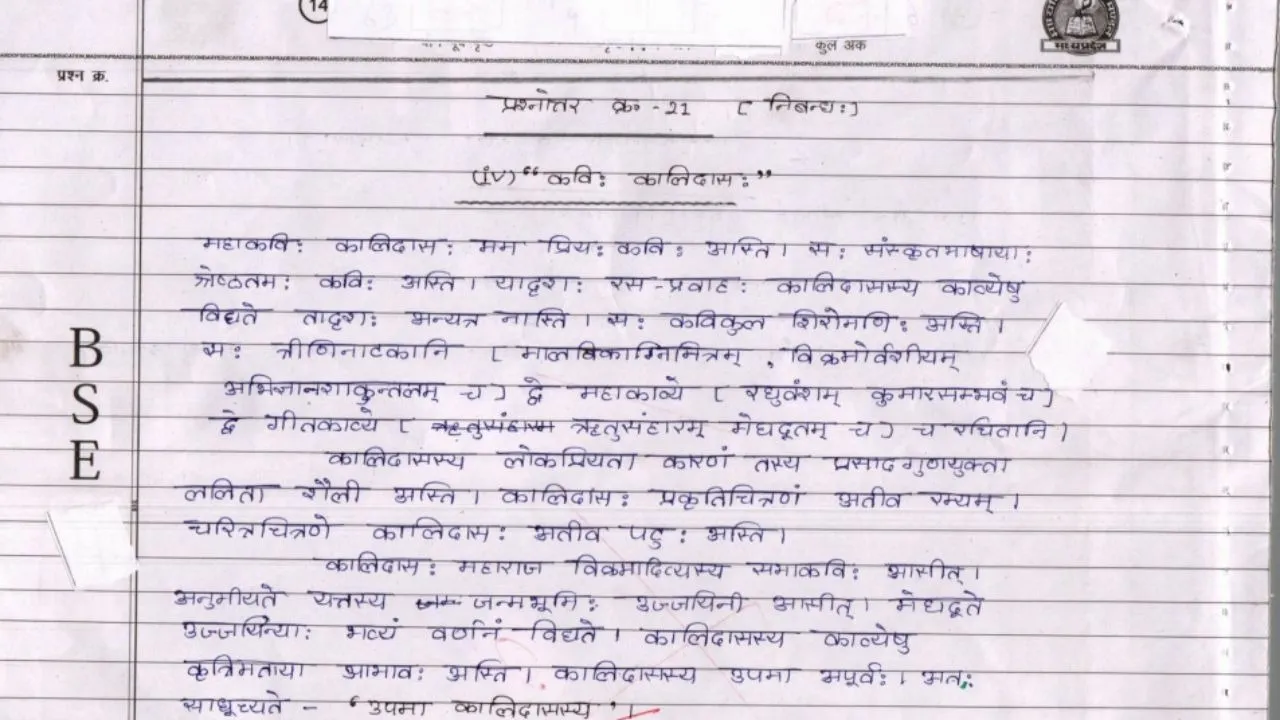 14
कुल अंक
मध्यप्रदेश
प्रश्न क्र.
प्रश्नोत्तर क्र॰ -21 [ निबन्धः]
(iv) “ कविः कालिदासः ”
महाकविः कालिदासः मम प्रियः कविः अस्ति। सः संस्कृतभाषायाः
श्रेष्ठतमः कविः अस्ति। यादृशः रस-प्रवाहः कालिदासस्य काव्येषु
विद्यते तादृशः अन्यत्र नास्ति। सः कविकुल शिरोमणिः अस्ति।
सः त्रीणिनाटकानि [ मालविकाग्निमित्रम् , विक्रमोर्वशीयम्
अभिज्ञानशाकुन्तलम् च ] द्वे महाकाव्ये [ रघुवंशम् कुमारसम्भवं च ]
द्वे गीतकाव्ये [ ऋतुसंहारम् मेघदूतम् च ] च रचितानि।
कालिदासस्य लोकप्रियता कारणं तस्य प्रसादगुणयुक्ता
ललिता शैली अस्ति। कालिदासः प्रकृतिचित्रणं अतीव रम्यम्।
चरित्रचित्रणे कालिदासः अतीव पटुः अस्ति।
कालिदासः महाराज विक्रमादित्यस्य सभाकविः आसीत्।
अनुमीयते यत्तस्य जन्मभूमिः उज्जयिनी आसीत्। मेघदूते
उज्जयिन्याः भव्यं वर्णनं विद्यते। कालिदासस्य काव्येषु
कृत्रिमताया आभावः अस्ति। कालिदासस्य उपमा अपूर्वः। अतः
साधूच्यते - ‘ उपमा कालिदासस्य ’।
B
S
E